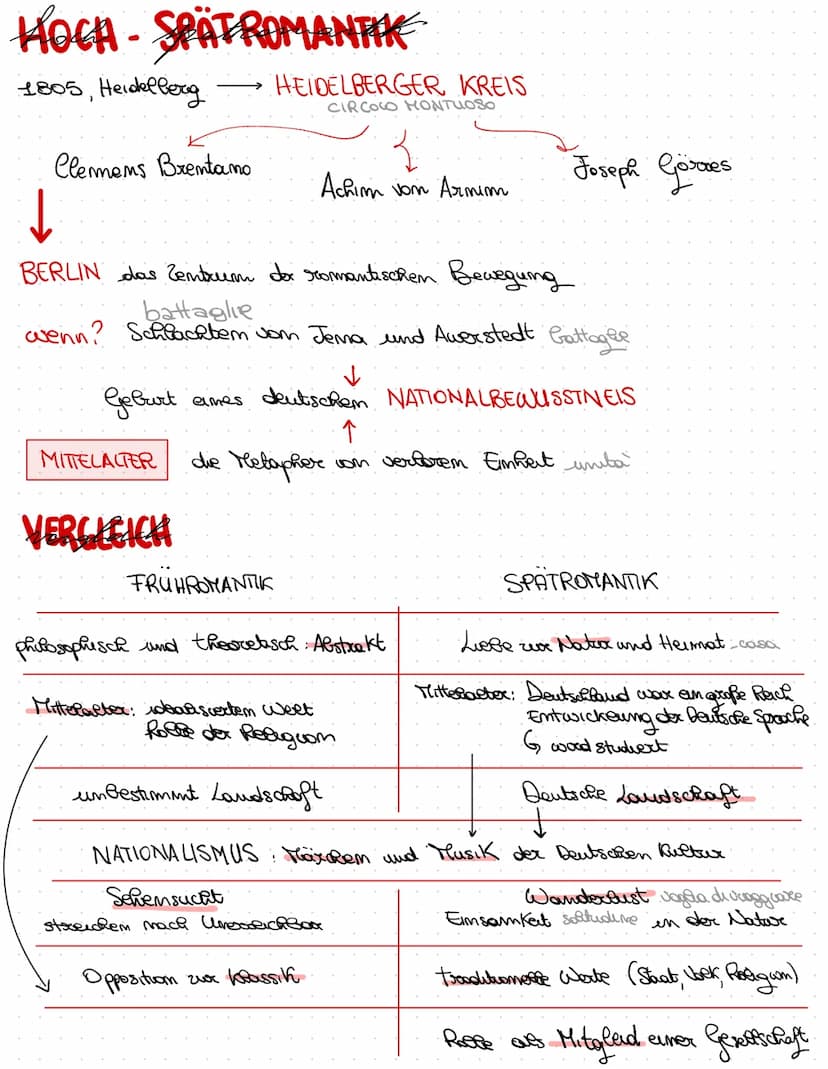 HOCH - SPÄTROMANTIK
1805, Heidelberg → HEIDELBERGER KREIS
CIRCOLO MONTUOSO
Clemens Brentano
Achim von Arnim
Joseph Görres
BERLIN das Zentrum der romantischen Bewegung
battaglie
wenn? Schlachten von Jena und Auerstedt battaglie
Geburt eines deutschen NATIONALBEWUSSTNEIS
MITTELALTER die Metapher von verloren Einheit unità
VERGLEICH
FRÜHROMANTIK
SPÄTROMANTIK
philosophisch und theoretisch: Abstrakt
Liebe zur Natur und Heimat - casa
Mittelalter: idealisierten Welt
Rolle der Religion
Mittelalter: Deutschland war ein große Reich
Entwicklung der Deutsche Sprache
↳ word studiert
unbestimmt Landschaft
Deutsche Landschaft
NATIONALISMUS: Märchen und Musik der Deutschen Kultur
Sehensucht
streichen nach Unerreichbar
Wanderlust voglia di viaggiare
Einsamkeit solitudine in der Natur
Opposition zur Klassik
traditionelle Werte (Staat, Volk, Religion)
Rolle als Mitglied einer Gesellschaft